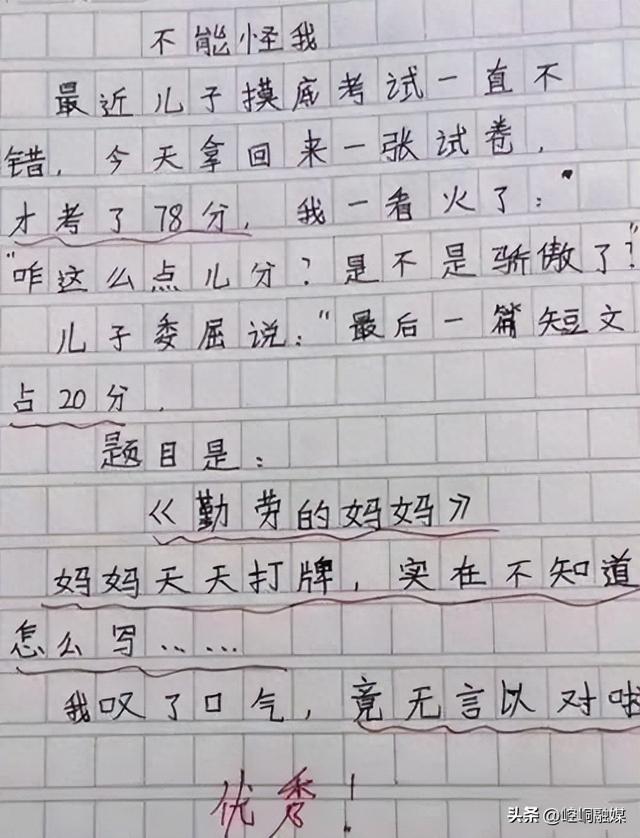 不能怪我
最近儿子摸底考试一直不
错，今天拿回来一张试卷，
才考了78分，我一看火了：“
“咋这么点儿分？是不是骄傲了？”
儿子委屈说：“最后一篇短文
占20分．
题目是：
《勤劳的妈妈》
妈妈天天打牌，实在不知道
怎么写……
我叹了口气，竟无言以对啦
优秀！
头条 @崆峒融媒